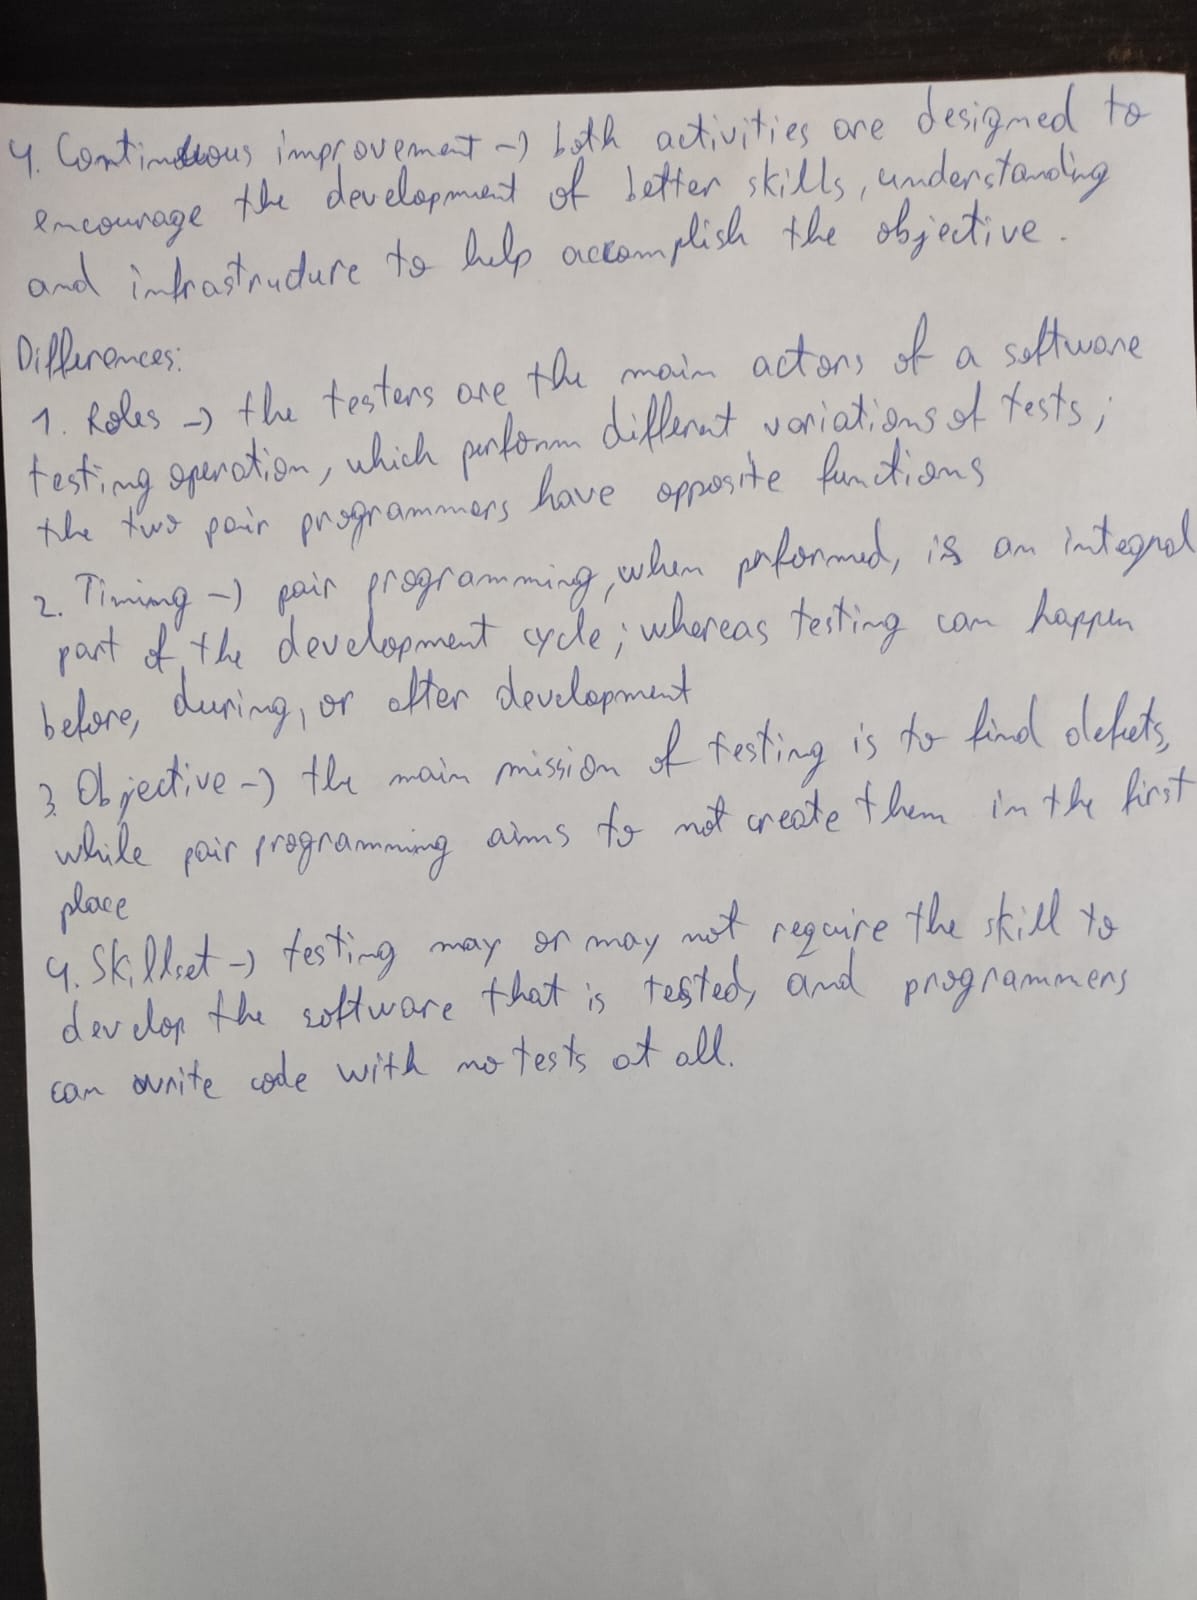 4. Continuous improvement -> both activities are designed to
encourage the development of better skills, understanding
and infrastructure to help accomplish the objective.
Differences:
1. Roles -> the testers are the main actors of a software
testing operation, which perform different variations of tests;
the two pair programmers have opposite functions
2. Timing -> pair programming, when performed, is an integral
part of the development cycle; whereas testing can happen
before, during, or after development
3. Objective -> the main mission of testing is to find defects,
while pair programming aims to not create them in the first
place
4. Skillset -> testing may or may not require the skill to
develop the software that is tested, and programmers
can write code with no tests at all.